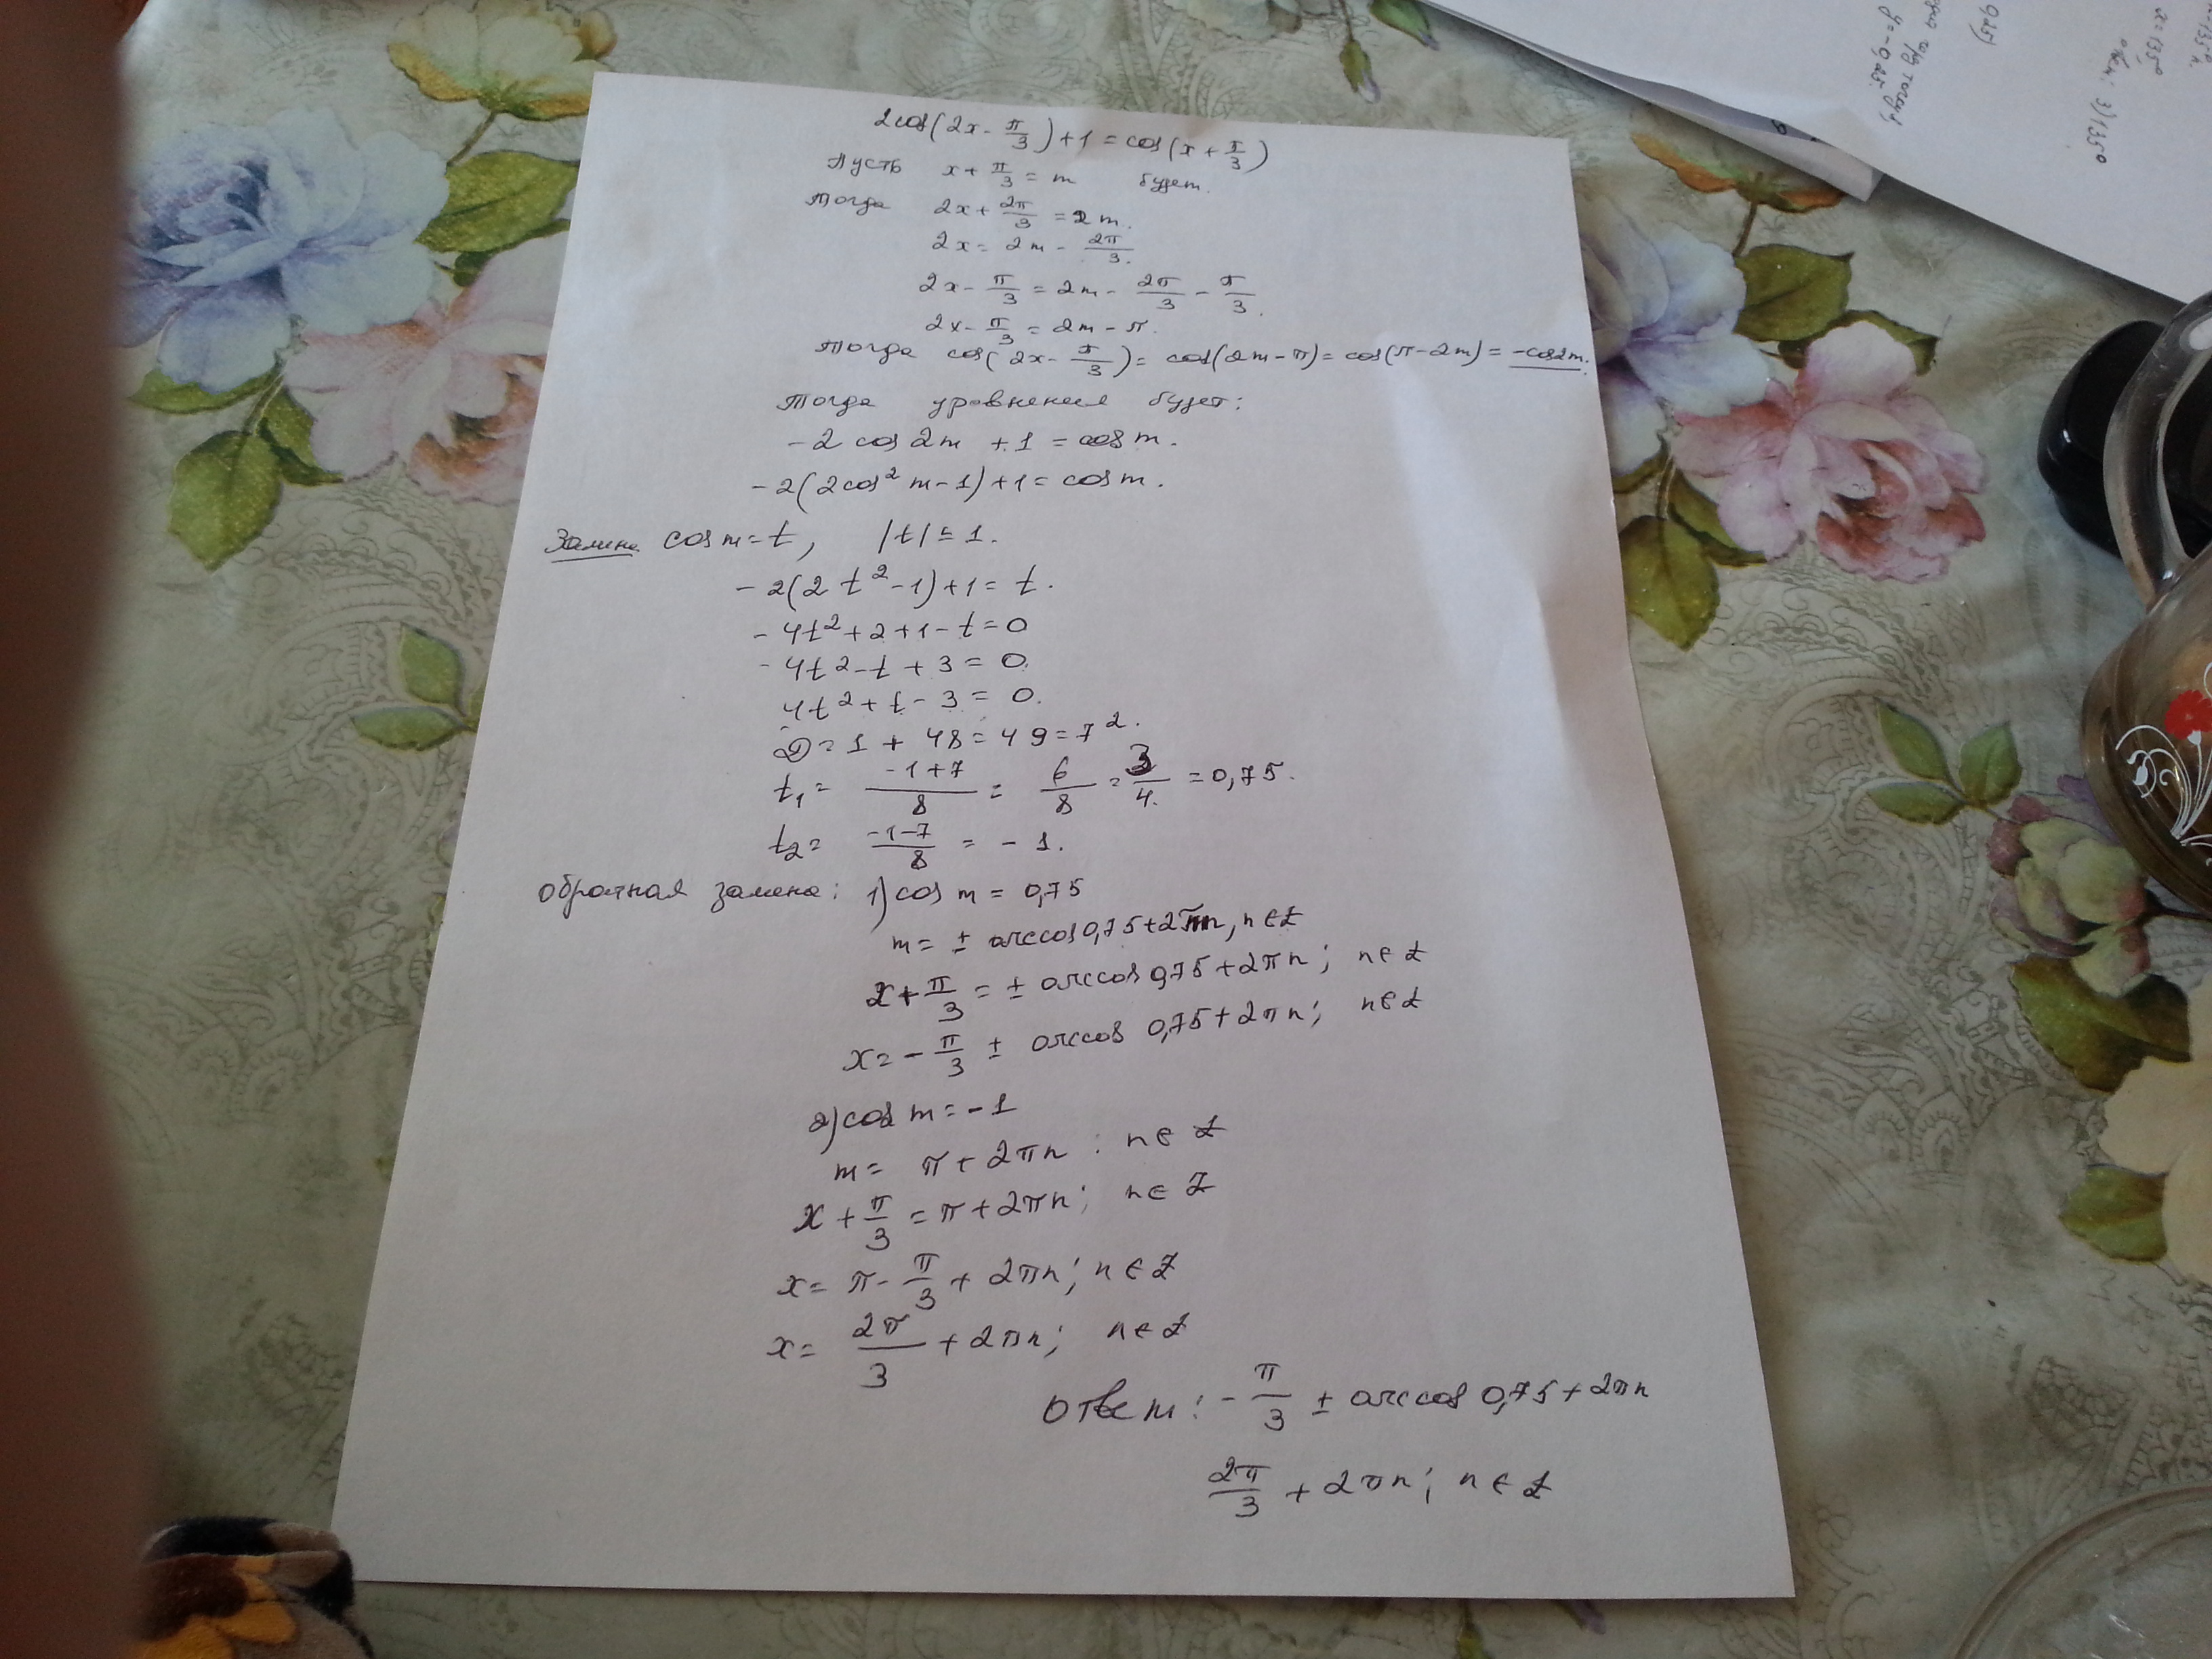 2cos(2x - π/3) + 1 = cos(x + π/3)
Пусть x + π/3 = m будет.
Тогда 2x + 2π/3 = 2m.
2x = 2m - 2π/3.
2x - π/3 = 2m - 2π/3 - π/3.
2x - π/3 = 2m - π.
Тогда cos(2x - π/3) = cos(2m - π) = cos(π - 2m) = -cos2m.
Тогда уровнения будет:
-2 cos 2m + 1 = cos m.
-2(2cos² m - 1) + 1 = cos m.
Замена cos m = t, |t| ≤ 1.
-2(2t² - 1) + 1 = t.
-4t² + 2 + 1 - t = 0
-4t² - t + 3 = 0.
4t² + t - 3 = 0.
D = 1 + 48 = 49 = 7².
t₁ = (-1+7)/8 = 6/8 = 3/4. = 0,75.
t₂ = (-1-7)/8 = -1.
Обратная замена: 1) cos m = 0,75
m = ± arccos 0,75 + 2πn, n∈Z
x + π/3 = ± arccos 0,75 + 2πn; n∈Z
x = - π/3 ± arccos 0,75 + 2πn; n∈Z
2) cos m = -1
m = π + 2πn : n∈Z
x + π/3 = π + 2πn; n∈Z
x = π - π/3 + 2πn; n∈Z
x = 2π/3 + 2πn; n∈Z
Ответ: - π/3 ± arccos 0,75 + 2πn
2π/3 + 2πn; n∈Z
x = 135°
Ответ: 3) 135°